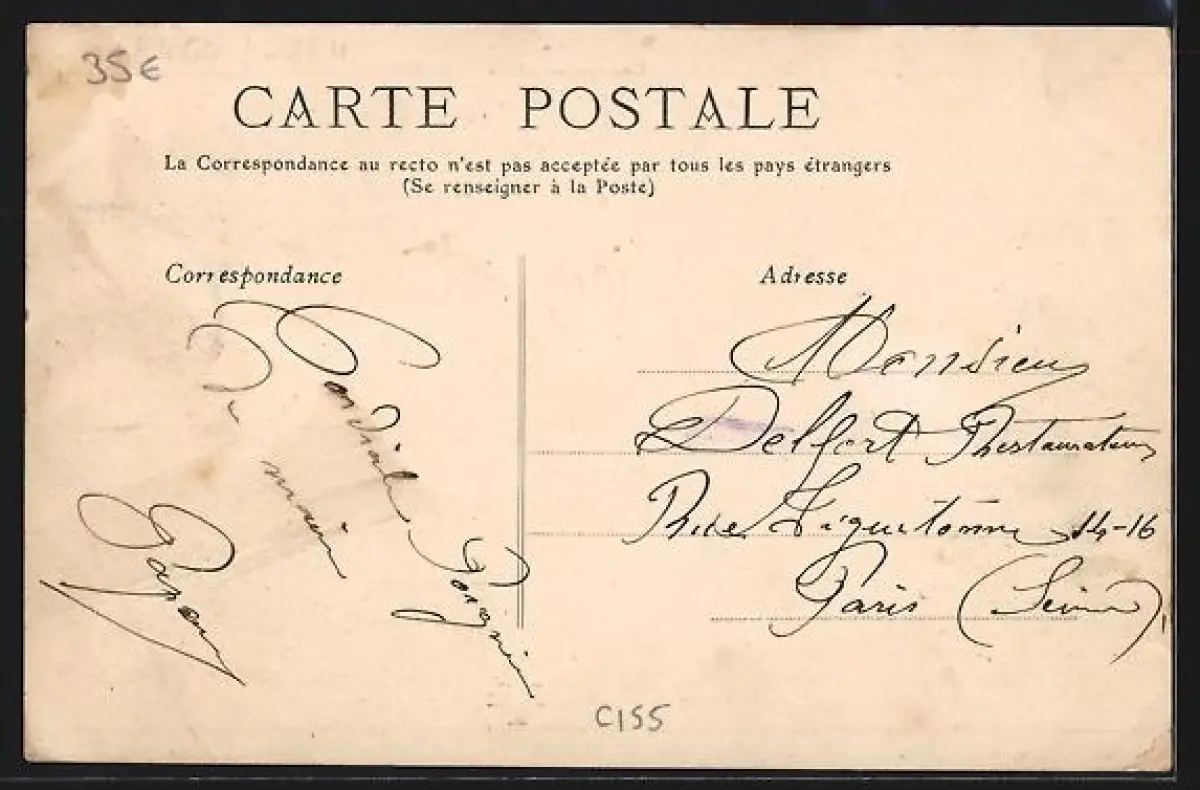 35€
CARTE POSTALE
La Correspondance au recto n'est pas acceptée par tous les pays étrangers
(Se renseigner à la Poste)
Correspondance
Cordiale Poignée
de main
Adresse
Monsieur
Delfort Restaurateur
Rue Tiquetonne 14-16
Paris (Seine)
C155